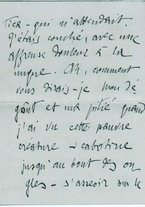 qui m'attendait
j'étais couché, avec une
affreuse douleur à la
nuque. Ah, comment
vous dirais-je mon dé
goût et ma pitié quand
j'ai vu cette pauvre
creature - cabotine
jusqu'au bout des on
gles - s'asseoir sur le